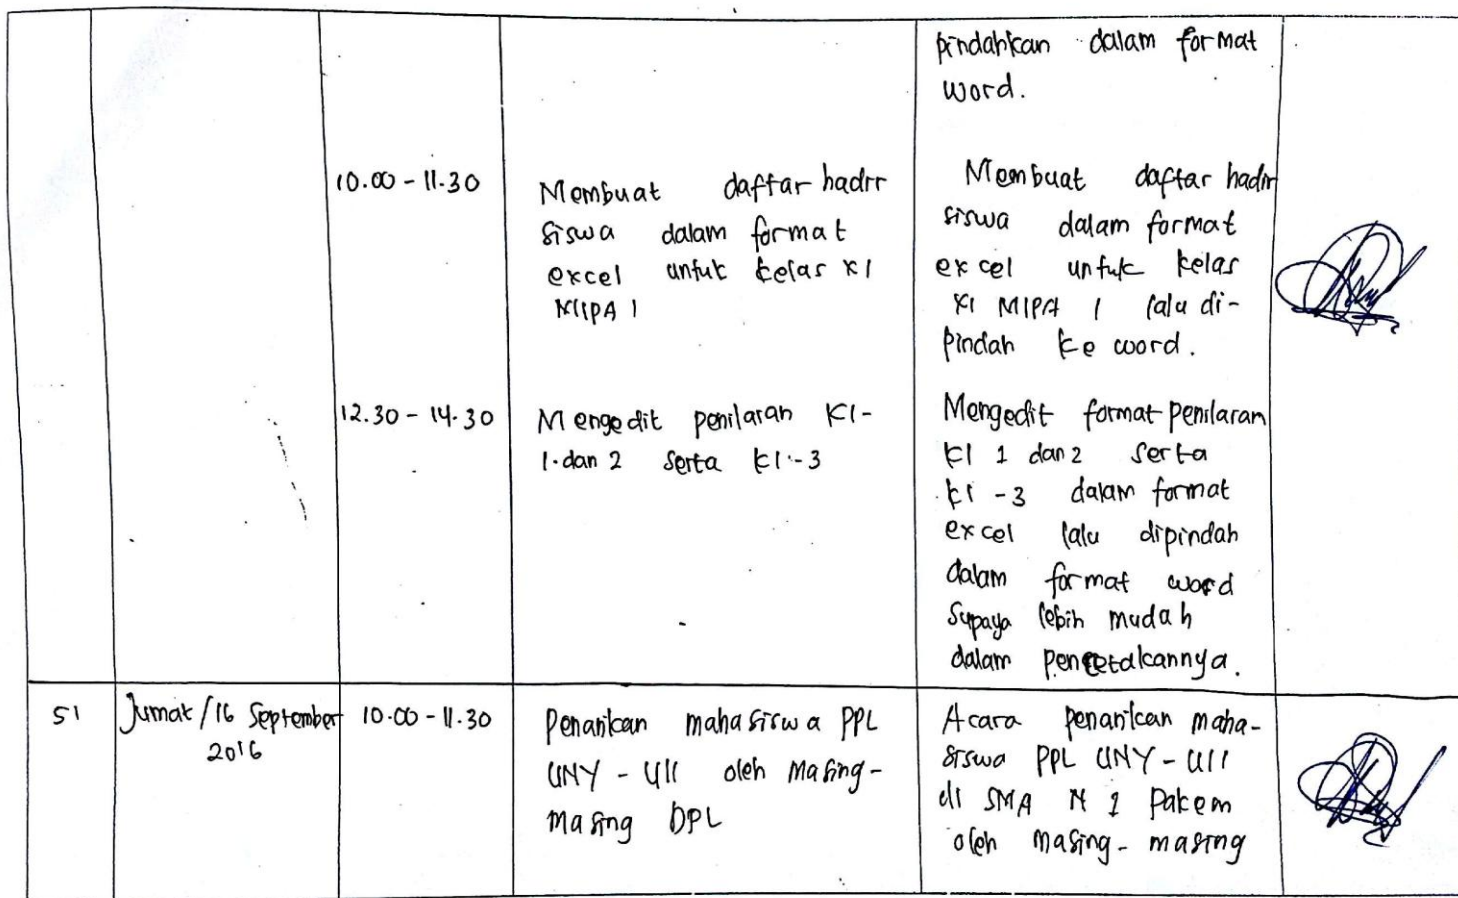 pindahkan dalam format
word.
10.00 - 11.30
Membuat daftar hadir
siswa dalam format
excel untuk kelas XI
MIPA 1
Membuat daftar hadir
siswa dalam format
excel untuk kelas
XI MIPA 1 lalu di-
pindah ke word.
12.30 - 14.30
Mengedit penilaian KI-
1 dan 2 serta KI-3
Mengedit format penilaian
KI 1 dan 2 serta
KI -3 dalam format
excel lalu dipindah
dalam format word
supaya lebih mudah
dalam pencetakannya.
51
Jumat / 16 September
2016
10.00 - 11.30
Penarikan mahasiswa PPL
UNY - UII oleh masing-
masing DPL
Acara penarikan maha-
siswa PPL UNY - UII
di SMA N 1 Pakem
oleh masing - masing